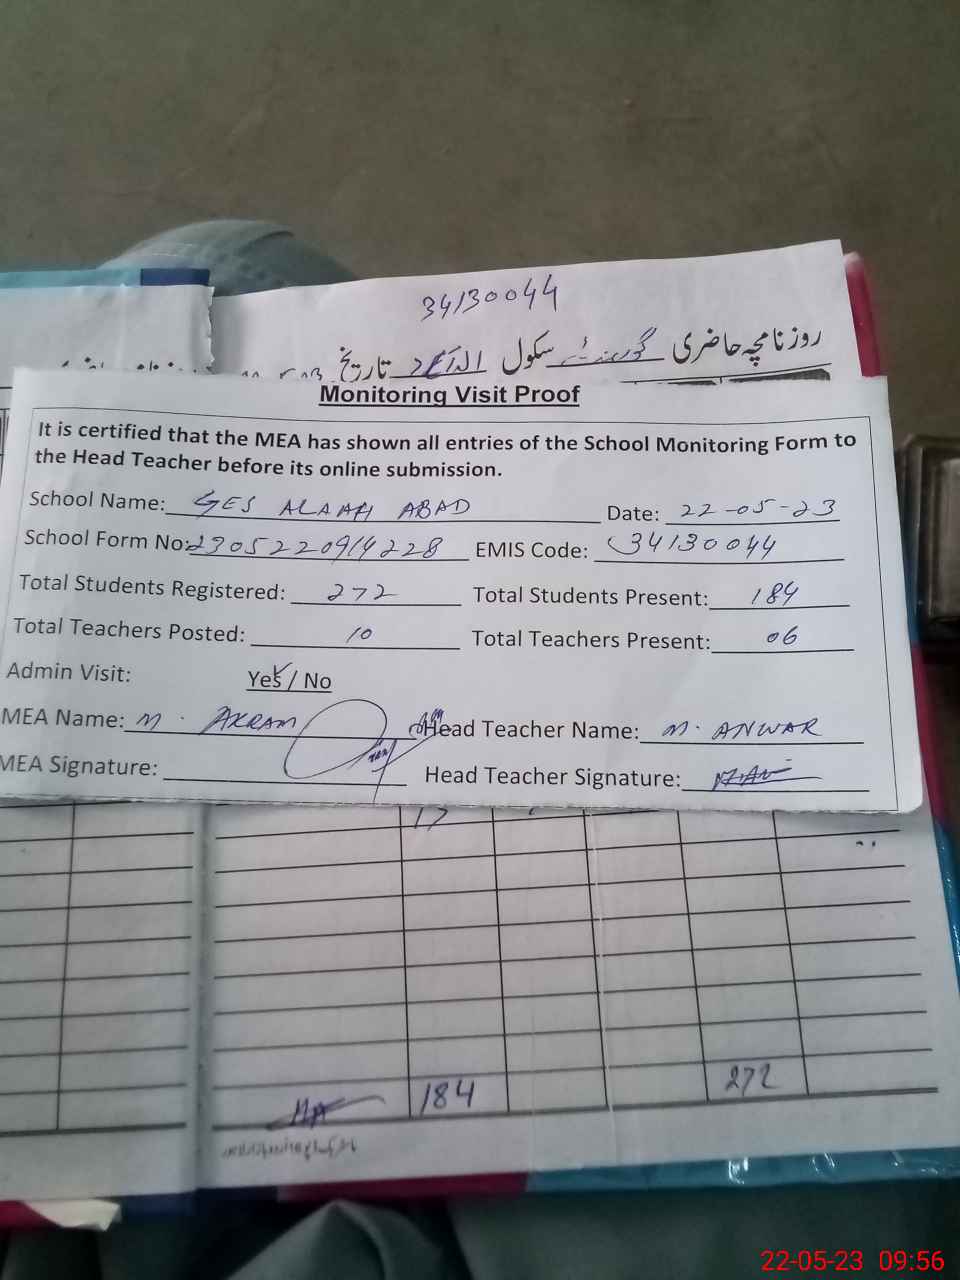 34130044
روزنامچہ حاضری گورنمنٹ سکول تاریخ
Monitoring Visit Proof
It is certified that the MEA has shown all entries of the School Monitoring Form to
the Head Teacher before its online submission.
School Name: GES ALAAH ABAD Date: 22-05-23
School Form No: 2305220914228 EMIS Code: 34130044
Total Students Registered: 272 Total Students Present: 184
Total Teachers Posted: 10 Total Teachers Present: 06
Admin Visit: Yes / No
MEA Name: M. AKRAM Head Teacher Name: M. ANWAR
MEA Signature: Head Teacher Signature:
17
184 272
22-05-23 09:56